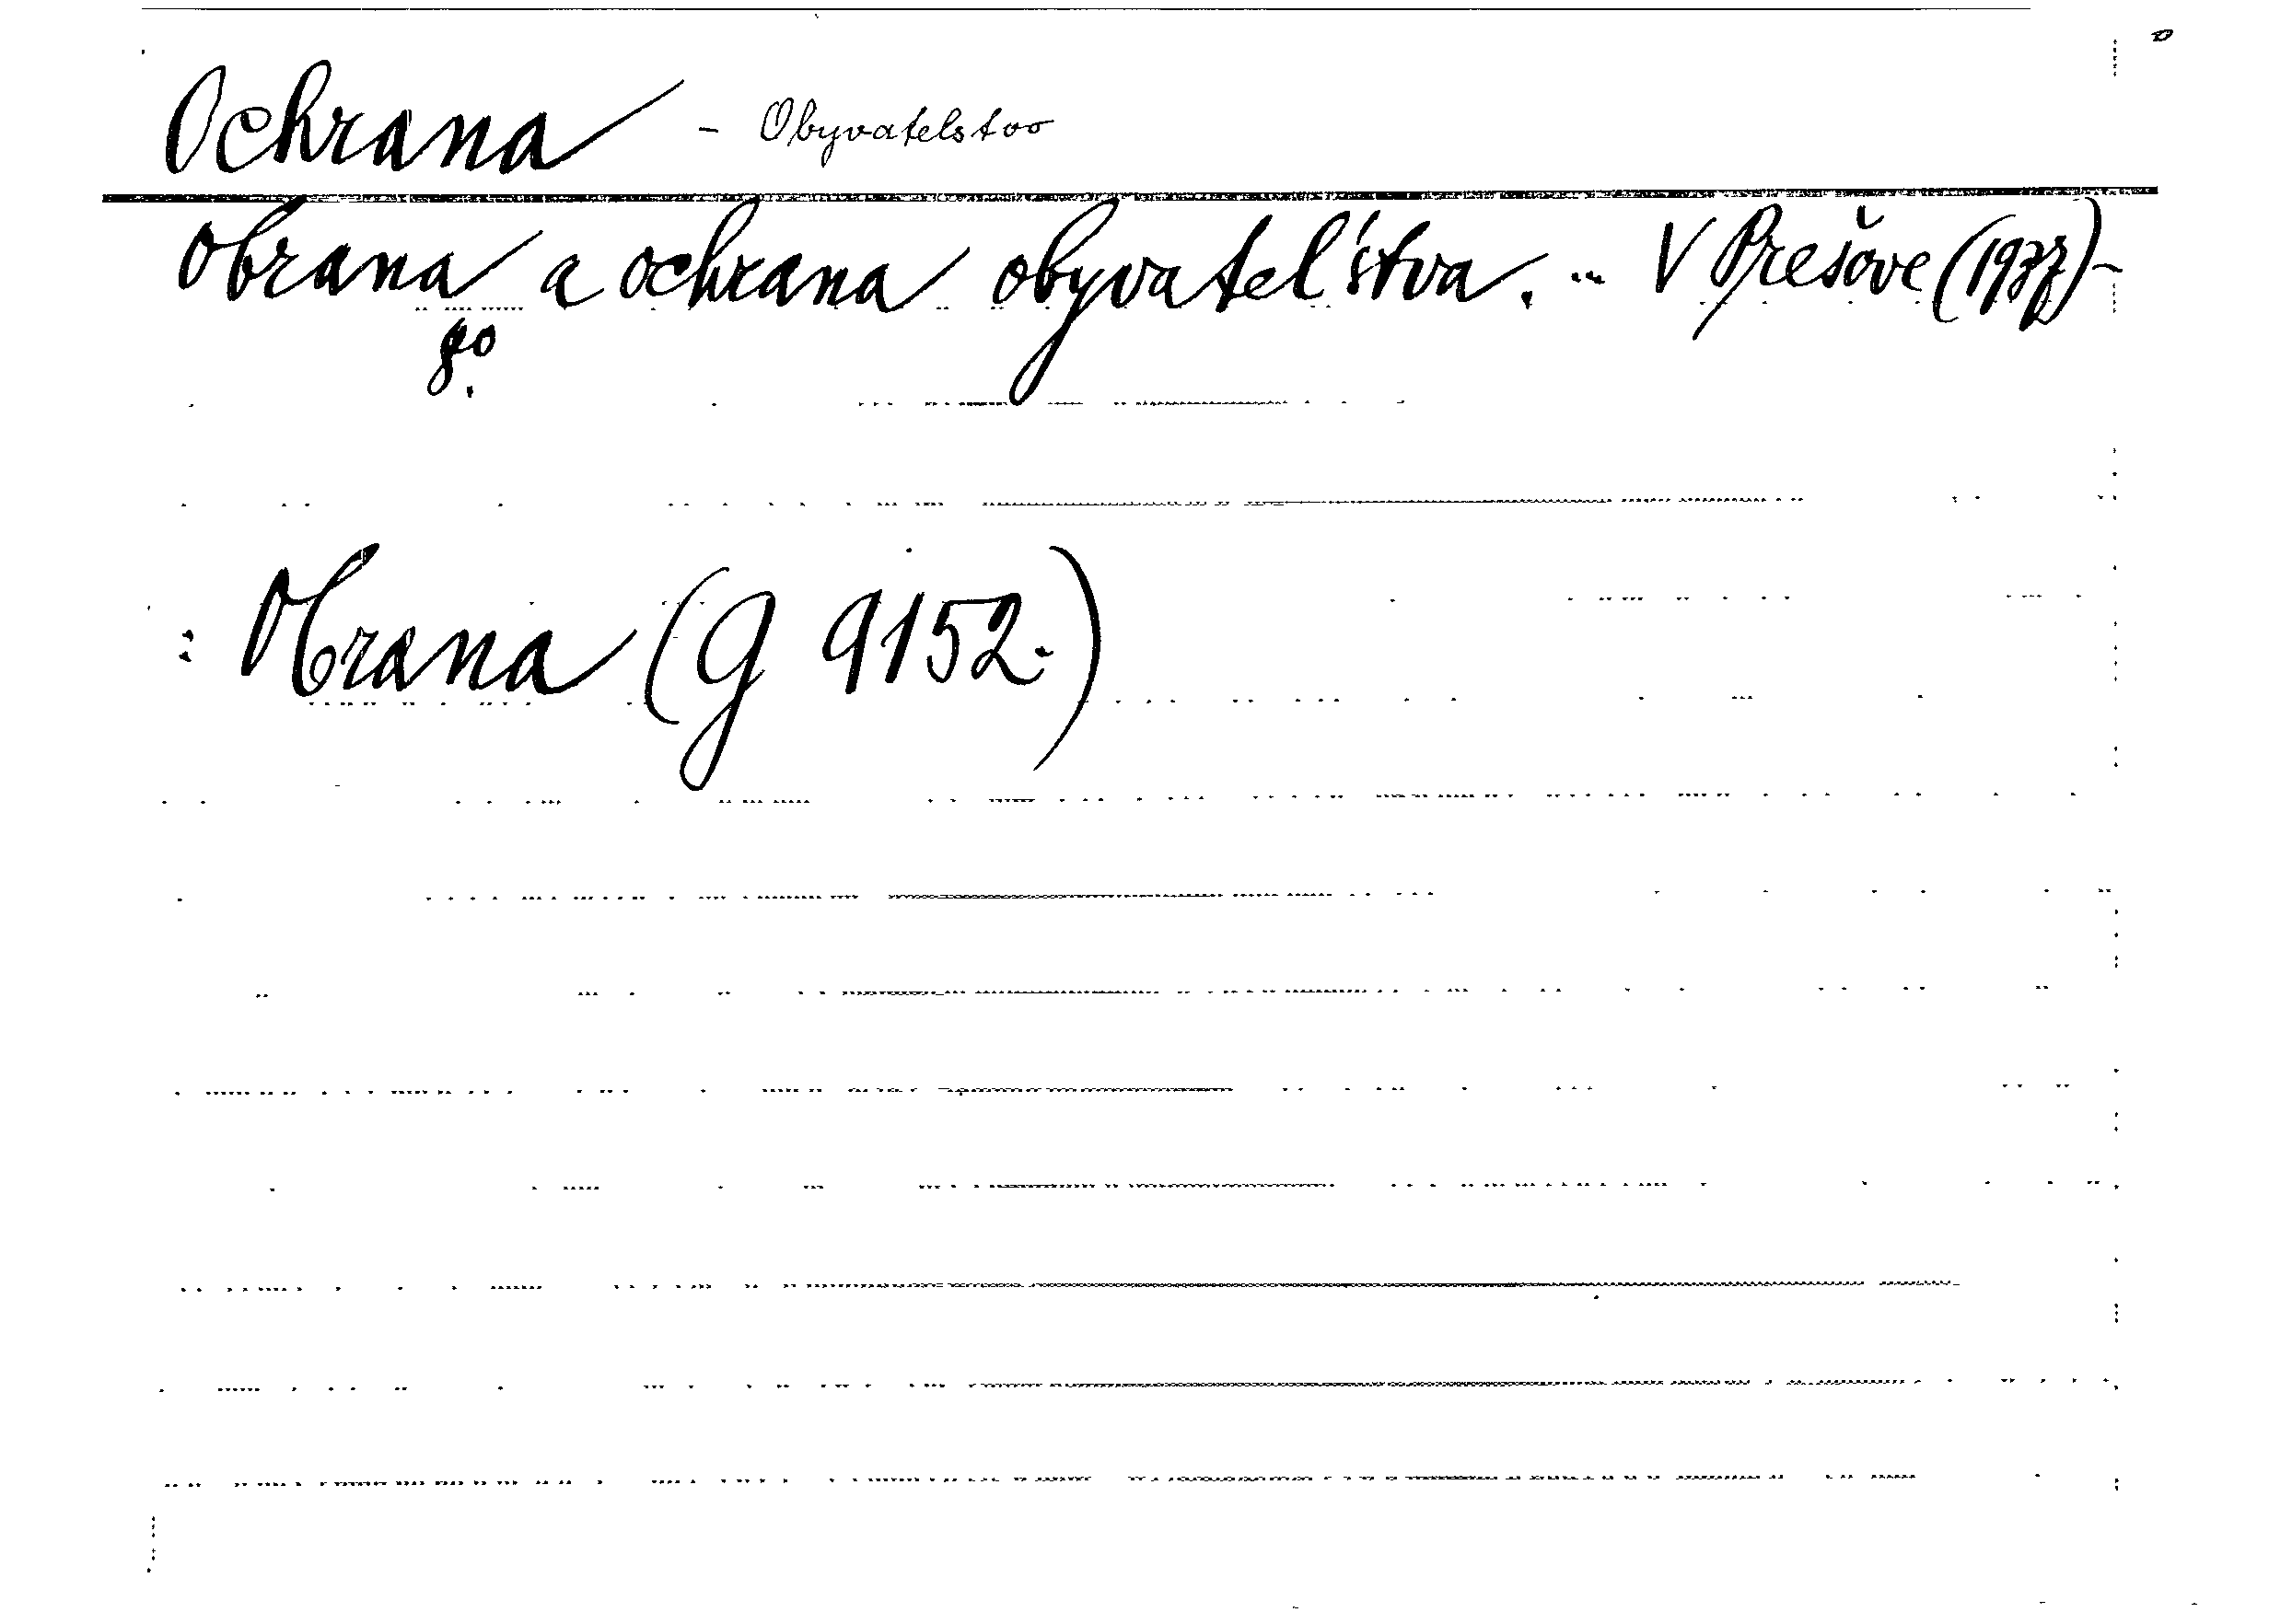 Ochrana - Obyvatelstvo
Obrana a ochrana obyvateľstva. - V Prešove (1937) -
8o.
: Obrana (G 9152.)